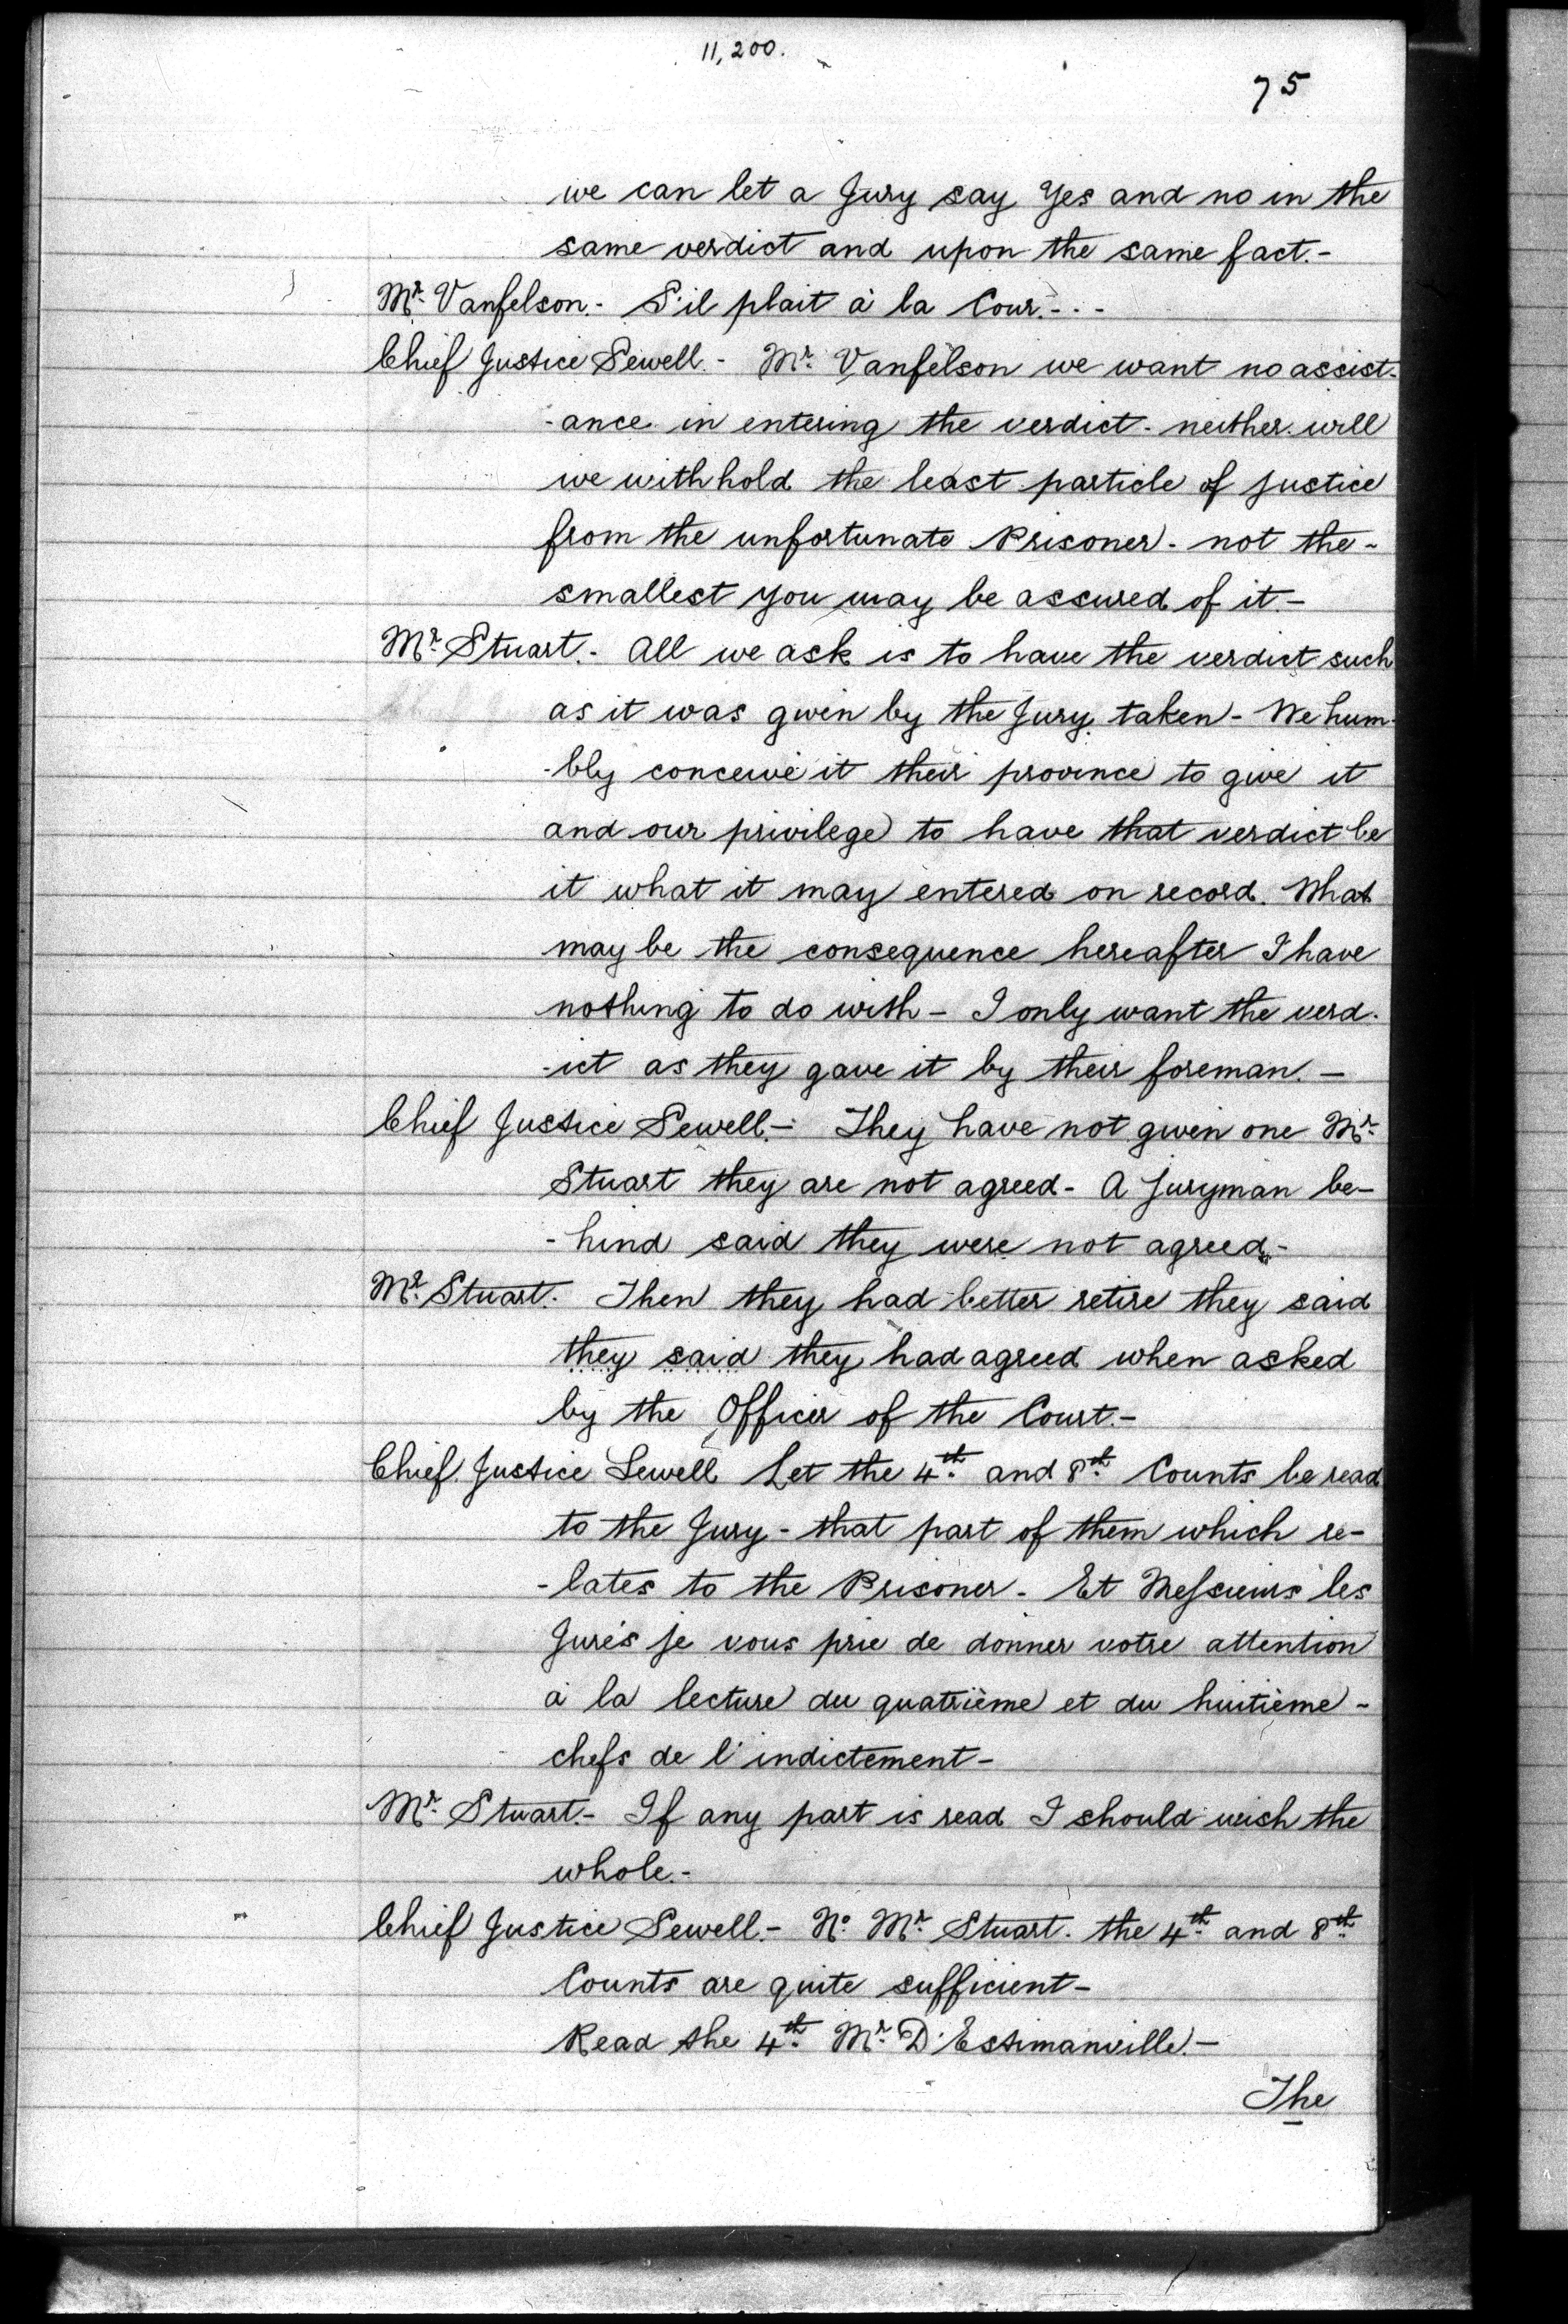 11,200.
75
we can let a Jury say Yes and no in the
same verdict and upon the same fact.-
Mr. Vanfelson.- S'il plait à la Cour.- - -
Chief Justice Sewell.- Mr. Vanfelson we want no assist-
-ance in entering the verdict - neither will
we withhold the least particle of justice
from the unfortunate Prisoner - not the -
smallest you may be assured of it.-
Mr. Stuart.- All we ask is to have the verdict such
as it was given by the Jury taken - We hum-
-bly conceive it their province to give it
and our privilege to have that verdict be
it what it may entered on record. What
may be the consequence hereafter I have
nothing to do with - I only want the verd-
-ict as they gave it by their foreman. -
Chief Justice Sewell.- They have not given one Mr.
Stuart they are not agreed - A Juryman be-
-hind said they were not agreed.-
Mr. Stuart. Then they had better retire they said
they said they had agreed when asked
by the Officer of the Court.-
Chief Justice Sewell Let the 4th. and 8th. Counts be read
to the Jury - that part of them which re-
-lates to the Prisoner - Et Messieurs les
Jurés je vous prie de donner votre attention
à la lecture du quatrième et du huitième -
chefs de l'indictement -
Mr. Stuart.- If any part is read I should wish the
whole.-
Chief Justice Sewell.- No. Mr. Stuart. the 4th. and 8th.
Counts are quite sufficient -
Read the 4th. Mr. D'Estimanville.-
The